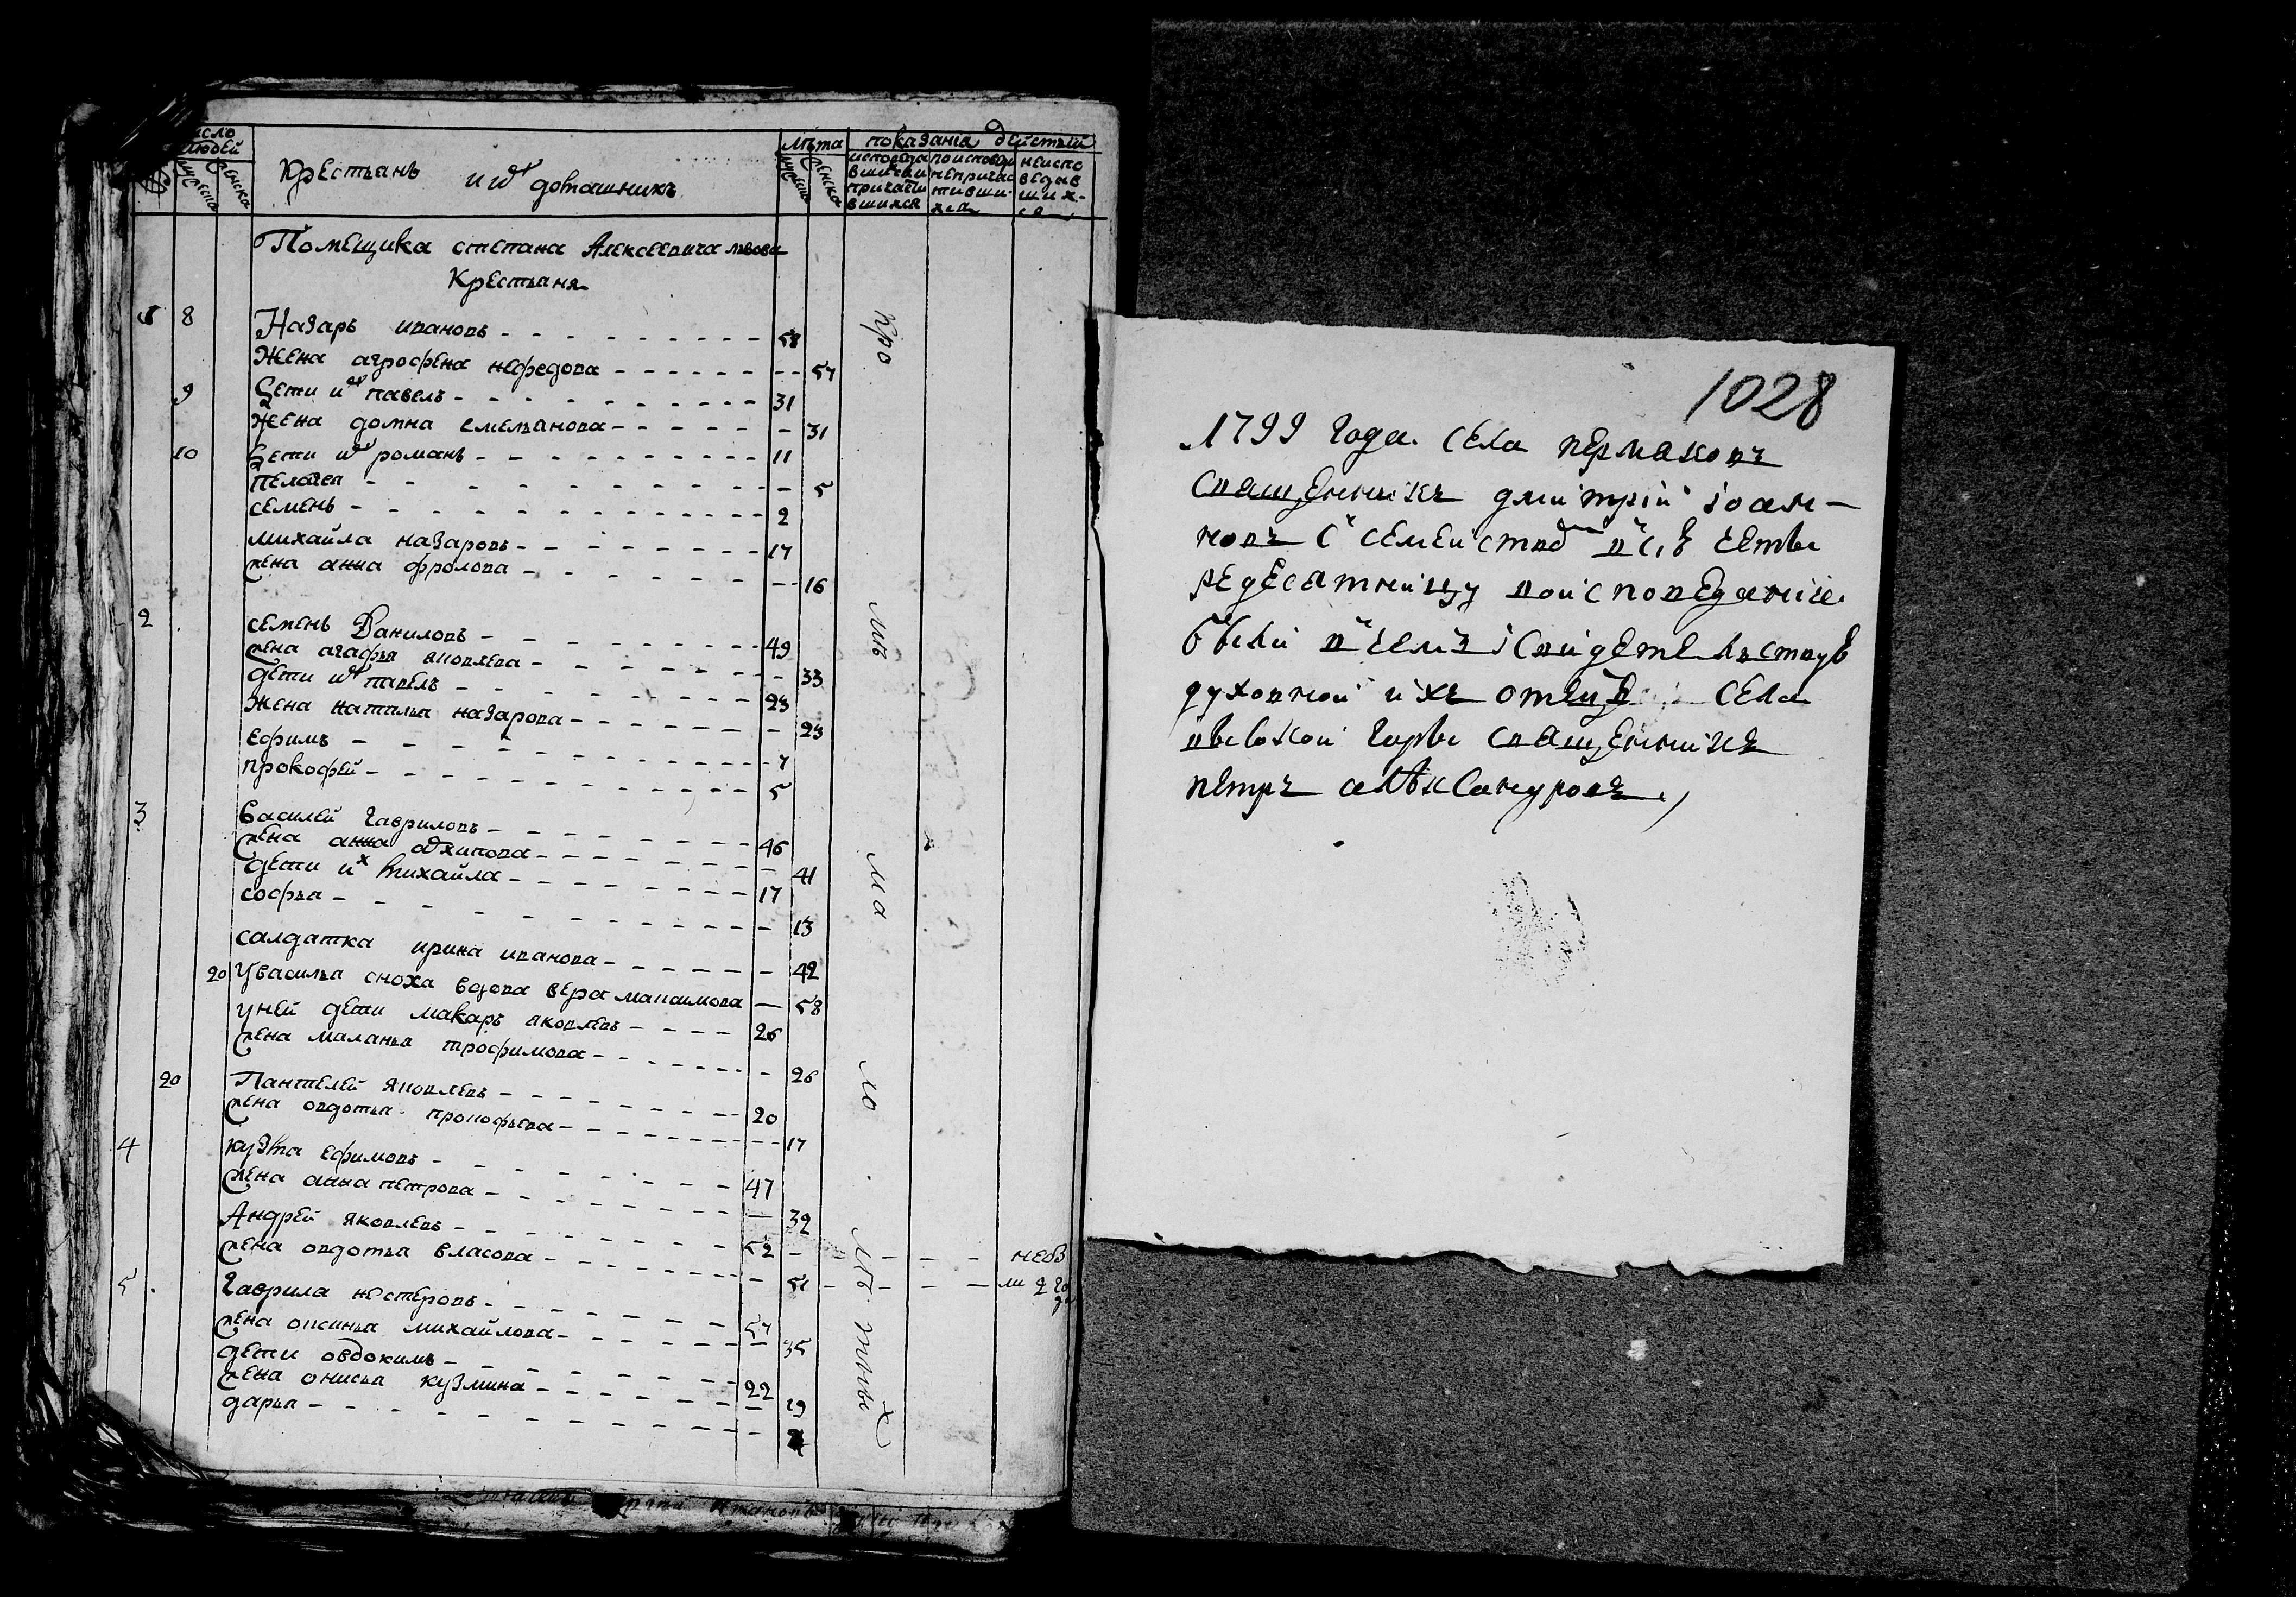 число людей
Крестьянъ и их домашникъ
лѣта
показания действий
исповеда вшихся и причасти вшихся
поисповеда непричас тивши хся
неиспо ведав ших- ся
Помещика степана Алексеевича львова
Крестьяня
8 Назаръ ивановъ 58
Жена агрофена нефедова 57
9 Дети их павелъ 31
Жена домна емельянова 31
10 Дети их романъ 11
пелагея 5
семенъ 2
михайла назаровъ 17
жена анна фролова 16
2 семенъ Даниловъ 49
жена агафья яковлева 33
дети их павелъ 23
жена наталья назарова 23
ефимъ 7
прокофей 5
3 василей гавриловъ 46
жена анна архипова 41
дети их михайла 17
софья 13
салдатка ирина иванова 42
20 у василья сноха вдова вера максимова 58
у ней дети макаръ яковлевъ 26
жена маланья трофимова 26
20 Пантелей яковлевъ 20
жена овдотья прокофьева 17
4 кузма ефимовъ 47
жена анна петрова 39
Андрей яковлевъ 52
жена овдотья власова 51
5 гаврила нестеровъ 57
жена оксинья михайлова 35
дети овдокимъ 22
жена онисья кузмина 19
дарья
1028
1799 года села пермяковъ
священникъ дмитрий иоан-
новъ с семейством
исповедание
были в сем и свидетельствуе
духовной ихъ отецъ села
высокой горы священникъ
петръ алѣксандровъ